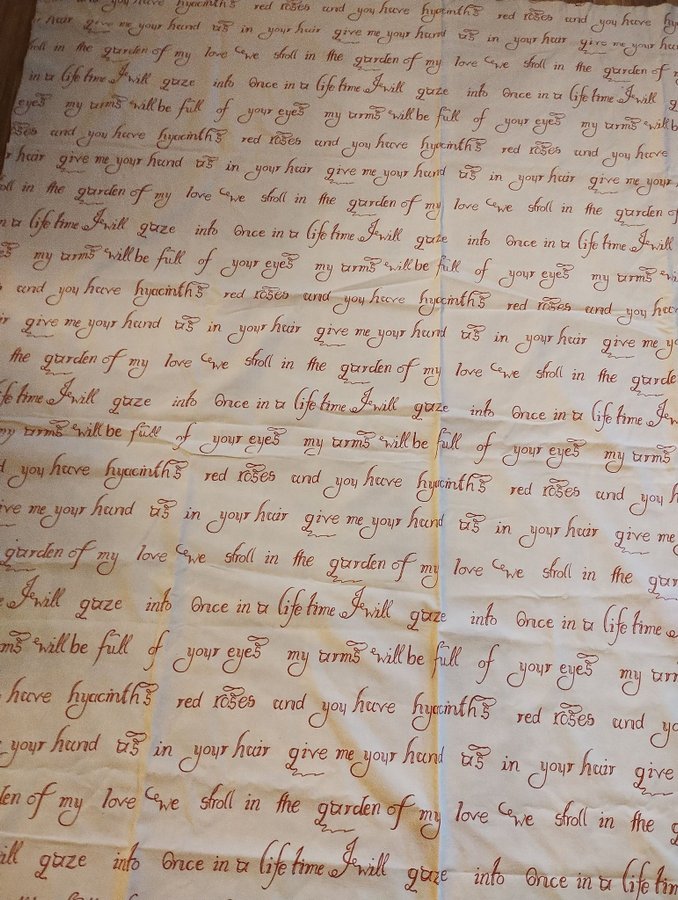 you have hyacinths red roses and you have hyacinths red roses and you have
hair give me your hand as in your hair give me your hand as in your hair give me your
in the garden of my love we stroll in the garden of my love we stroll in the garden of
in a life time I will gaze into Once in a life time I will gaze into Once in a life time I will
eyes my arms will be full of your eyes my arms will be full of your eyes my arms will
roses and you have hyacinths red roses and you have hyacinths red roses and you have
hair give me your hand as in your hair give me your hand as in your hair give me your
in the garden of my love we stroll in the garden of my love we stroll in the garden of
a life time I will gaze into Once in a life time I will gaze into Once in a life time I will
my arms will be full of your eyes my arms will be full of your eyes my arms
and you have hyacinths red roses and you have hyacinths red roses and you have
give me your hand as in your hair give me your hand as in your hair give me
the garden of my love we stroll in the garden of my love we stroll in the garden
life time I will gaze into Once in a life time I will gaze into Once in a life time I
my arms will be full of your eyes my arms will be full of your eyes my arms
you have hyacinths red roses and you have hyacinths red roses and you
give me your hand as in your hair give me your hand as in your hair give me
garden of my love we stroll in the garden of my love we stroll in the
I will gaze into Once in a life time I will gaze into Once in a life time
arms will be full of your eyes my arms will be full of your eyes my
have hyacinths red roses and you have hyacinths red roses and
your hand as in your hair give me your hand as in your hair give
of my love we stroll in the garden of my love we stroll in the
gaze into Once in a life time I will gaze into Once in a life